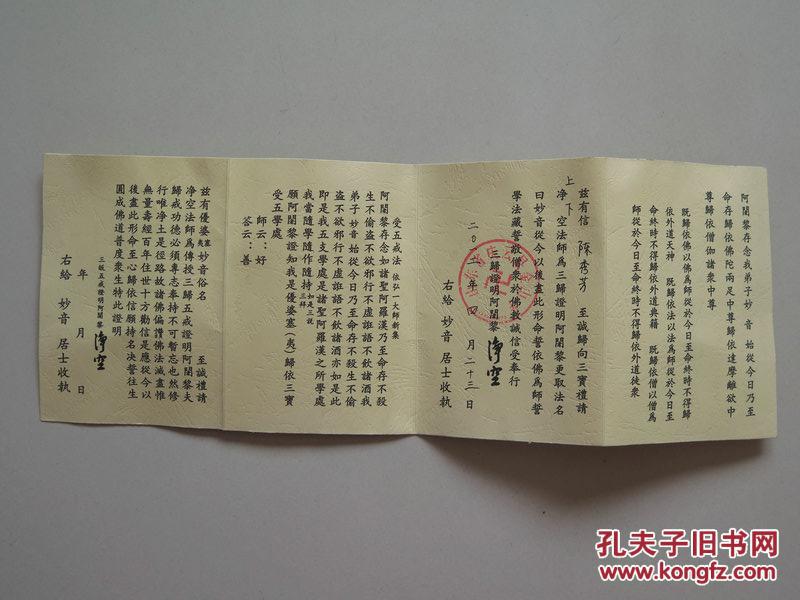 阿闍黎存念我弟子妙 音 始從今日乃至
命存歸依佛陀兩足中尊歸依達摩離欲中
尊歸依僧伽諸衆中尊
既歸依佛以佛爲師從於今日至命終時不得歸
依外道天神 既歸依法以法爲師從於今日至
命終時不得歸依外道典籍 既歸依僧以僧爲
師從於今日至命終時不得歸依外道徒衆
茲有信 陳秀芳 至誠歸向三寶禮請
上淨下空法師爲三歸證明阿闍黎更取法名
曰妙音從今以後盡此形命誓依佛爲師誓
學法藏誓敬僧衆於佛教誠信受奉行
三歸證明阿闍黎 淨空
年 四 月 二十三 日
右給 妙音 居士收執
受五戒法 依弘一大師新集
阿闍黎存念如諸聖阿羅漢乃至命存不殺
生不偷盜不欲邪行不虛誑語不飲諸酒我
弟子妙音始從今日乃至命存不殺生不偷
盜不欲邪行不虛誑語不飲諸酒亦如是此
即是我五支學處是諸聖阿羅漢之所學處
我當隨學隨作隨持 如是三說 三拜
願阿闍黎證知我是優婆塞(夷)歸依三寶
受五學處
師云:好
答云:善
茲有優婆塞夷妙音俗名 至誠禮請
淨空法師爲傳授三歸五戒證明阿闍黎夫
歸戒功德必須專志奉持不可暫忘也然修
行唯淨土是徑路故諸佛偏讚佛法滅盡惟
無量壽經百年住世十方勸信是應從今以
後盡此形命至心歸依信願持名決誓往生
圓成佛道普度衆生特此證明
三皈五戒證明阿闍黎 淨空
年 月 日
右給 妙音 居士收執
孔夫子旧书网
www.kongfz.com